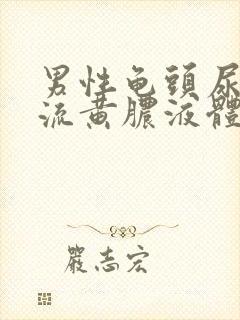 男性龟頭尿
流黄膿液體
嚴志宏